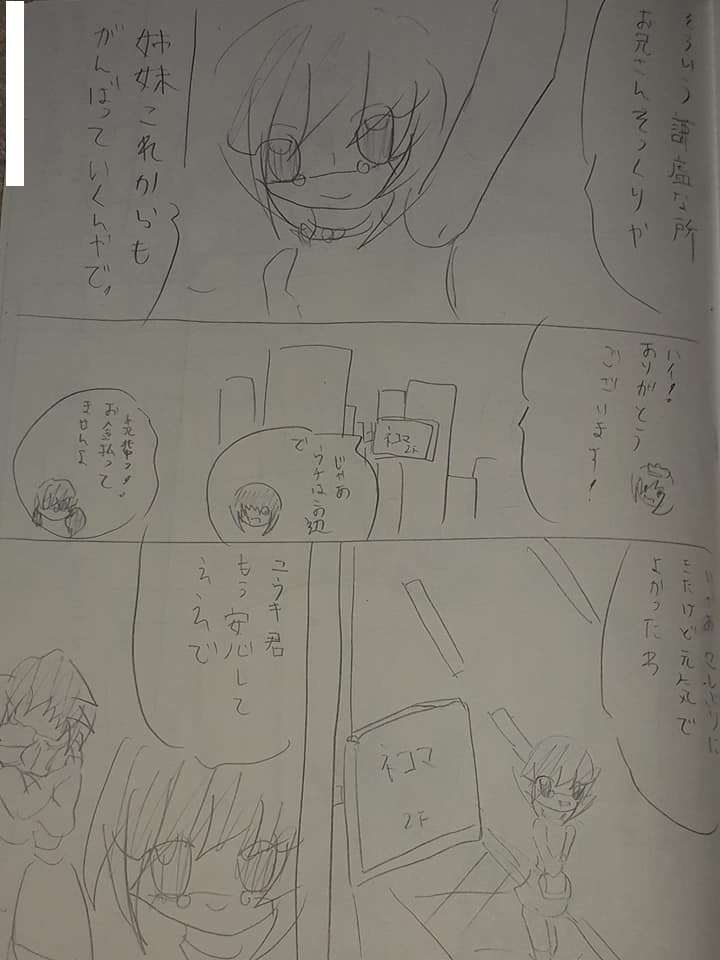 そういう謙虚な所
お兄さんそっくりや
姉妹これからも
がんばっていくんやで!
ハイ!
ありがとう
ございます!
ネコマ
2F
じゃあ
ウチはこの辺
で
先輩っ!
お金払って
ませんよ
じゃあ
きたけど元気で
よかったわ
ネコマ
2F
ユウキ君
もう安心して
ええで